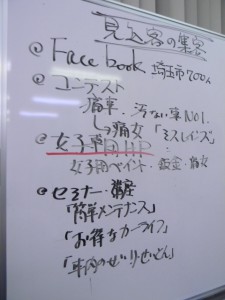 見込客の集客
@ Facebook 埼玉市700人
@ コンテスト
痛車・汚ない車NO1.
↳痛女「ミスレイズ」
@ 女子専用HP
女子用ペイント・鈑金・痛女
@ セミナー・講座
「簡単メンテナンス」
「お得なカーライフ」
「車内のせいりせいとん」